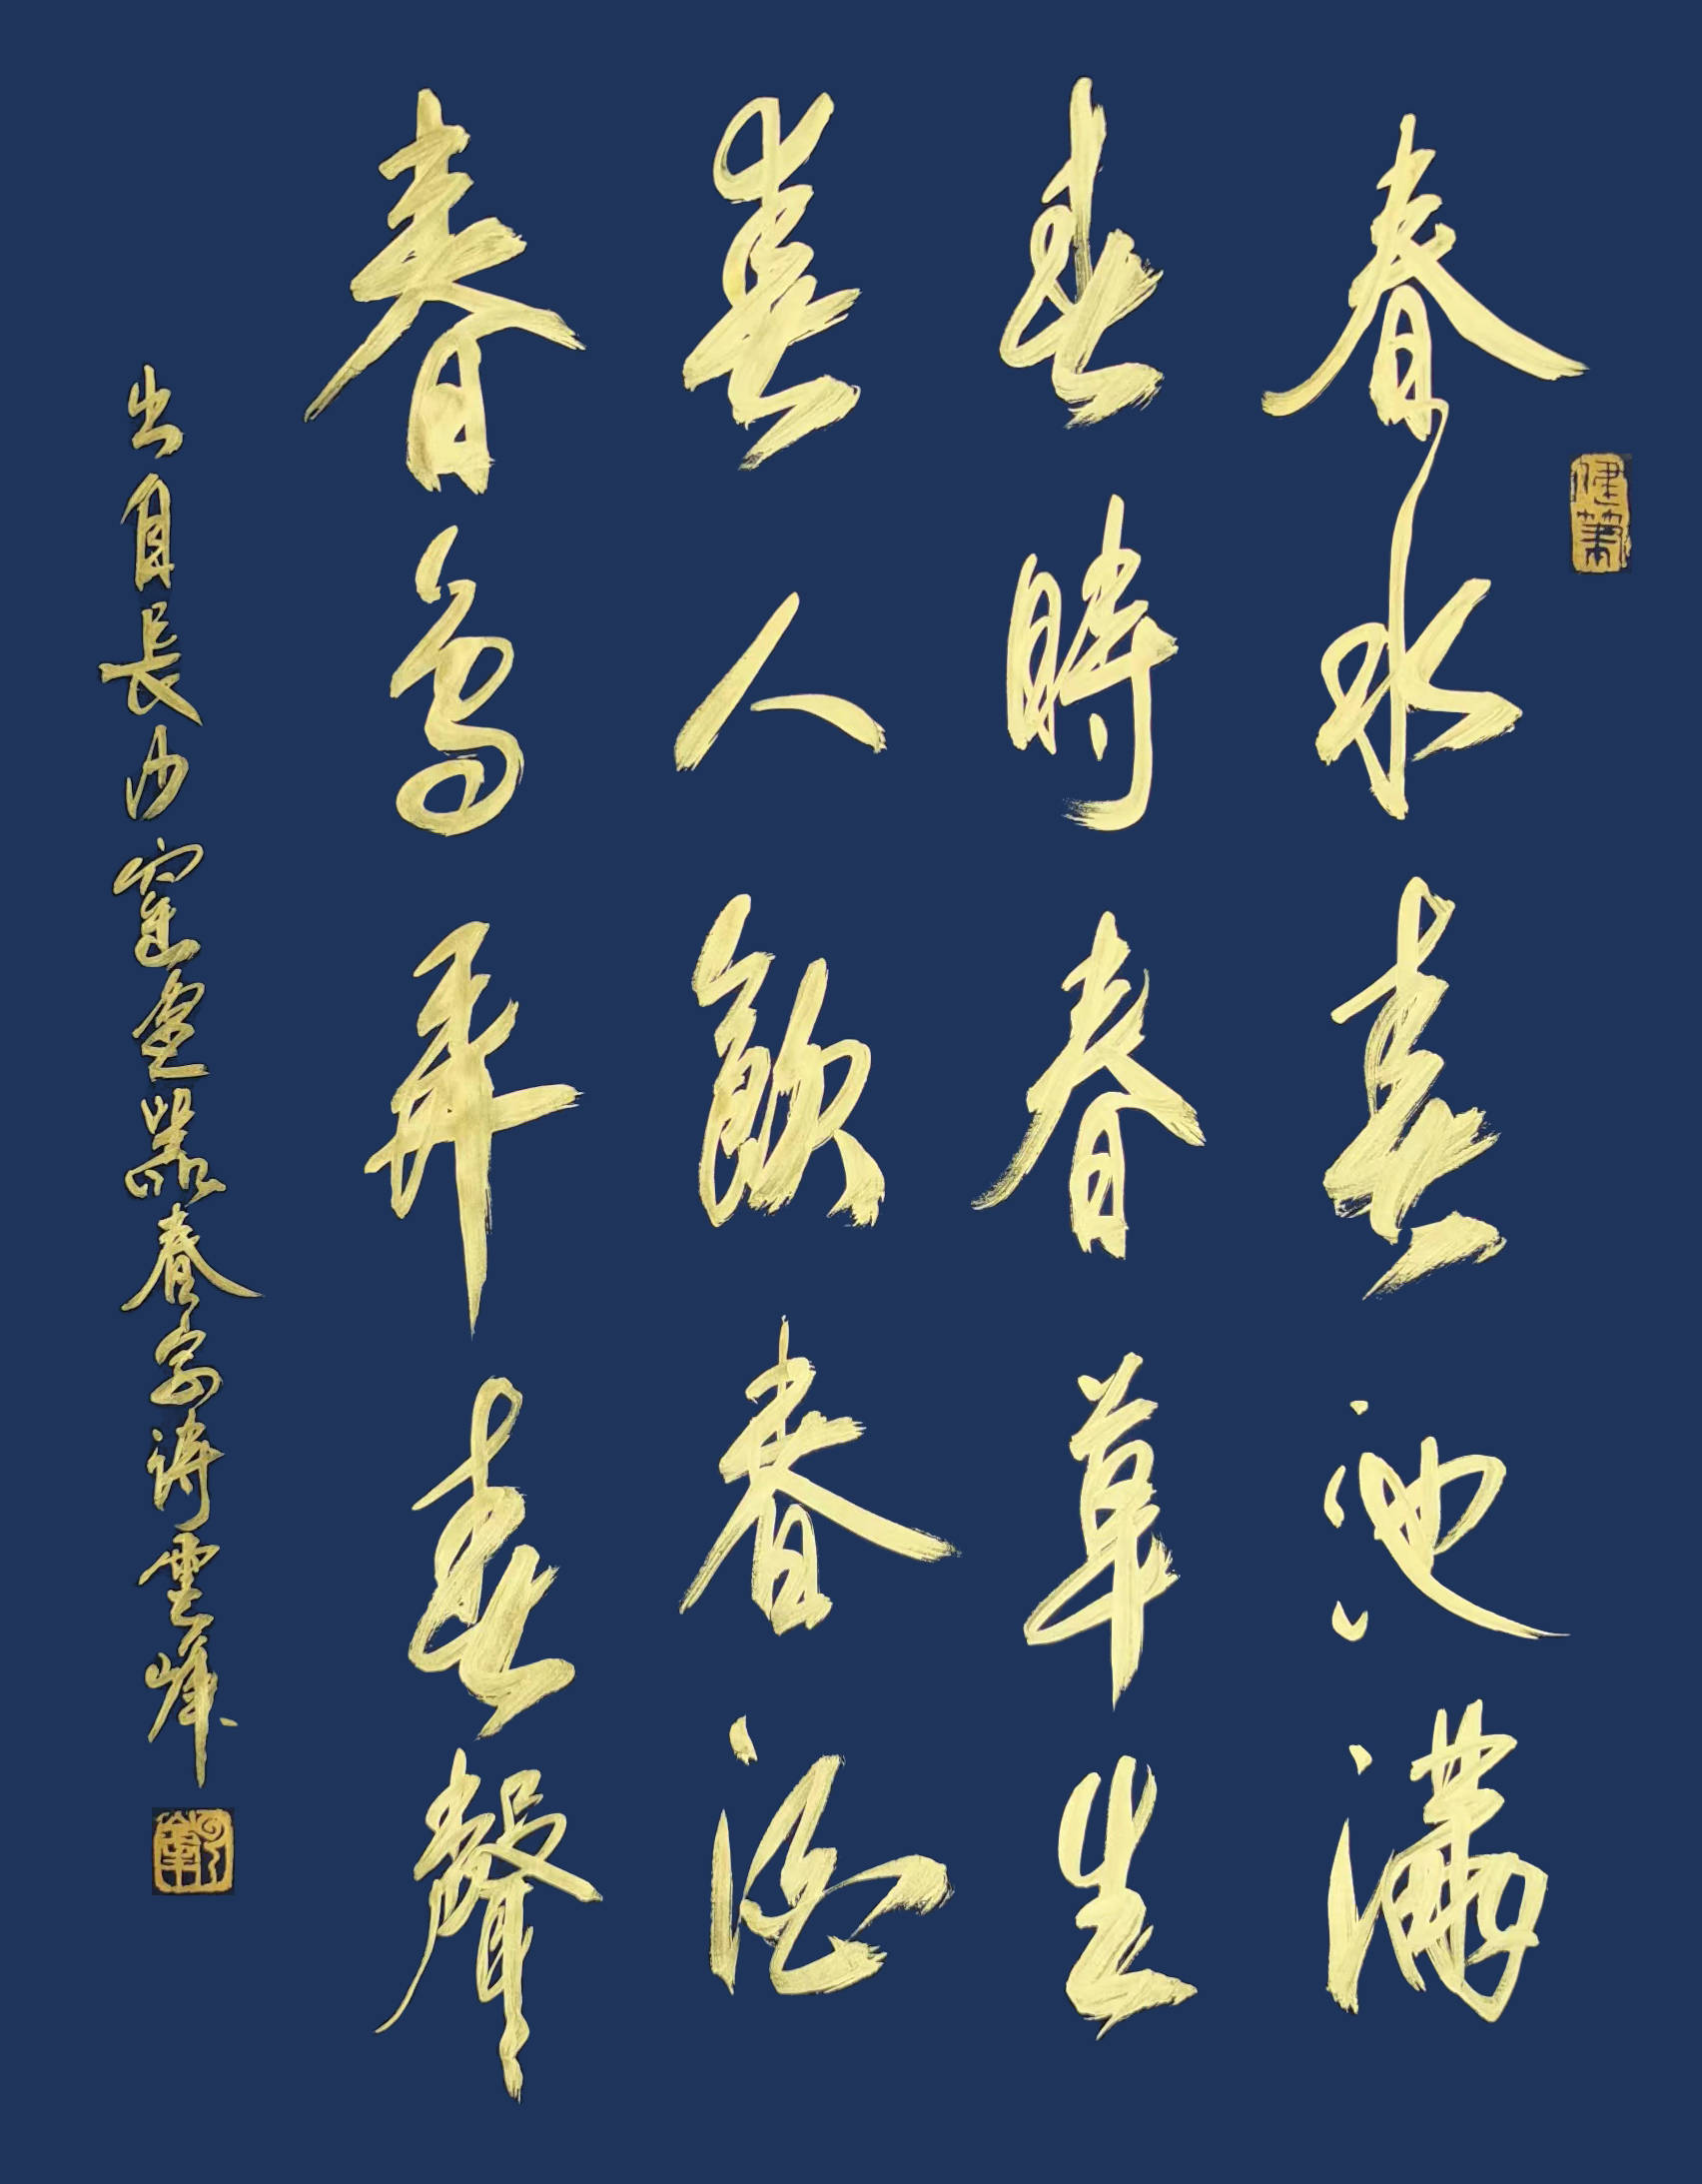 春水春池滿
春時春草生
春人飲春酒
春鳥弄春聲
出自長沙窯壺器春字詩雲峰